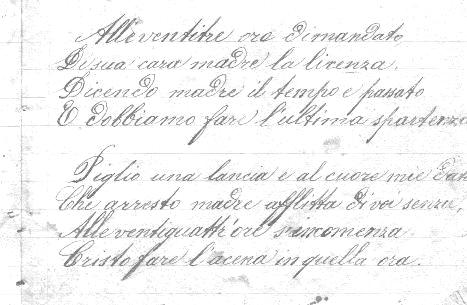 Alleventitre ore dimandato
Di sua cara madre la licenza.
Dicendo madre il tempo e passato
E dobbiamo fare l'ultima spartenza
Piglio una lancia e al cuore mie
Che arresto madre afflitta di voi senza,
Alle ventiquattr'ore s'incomenza
Cristo fare l'acena in quella ora.